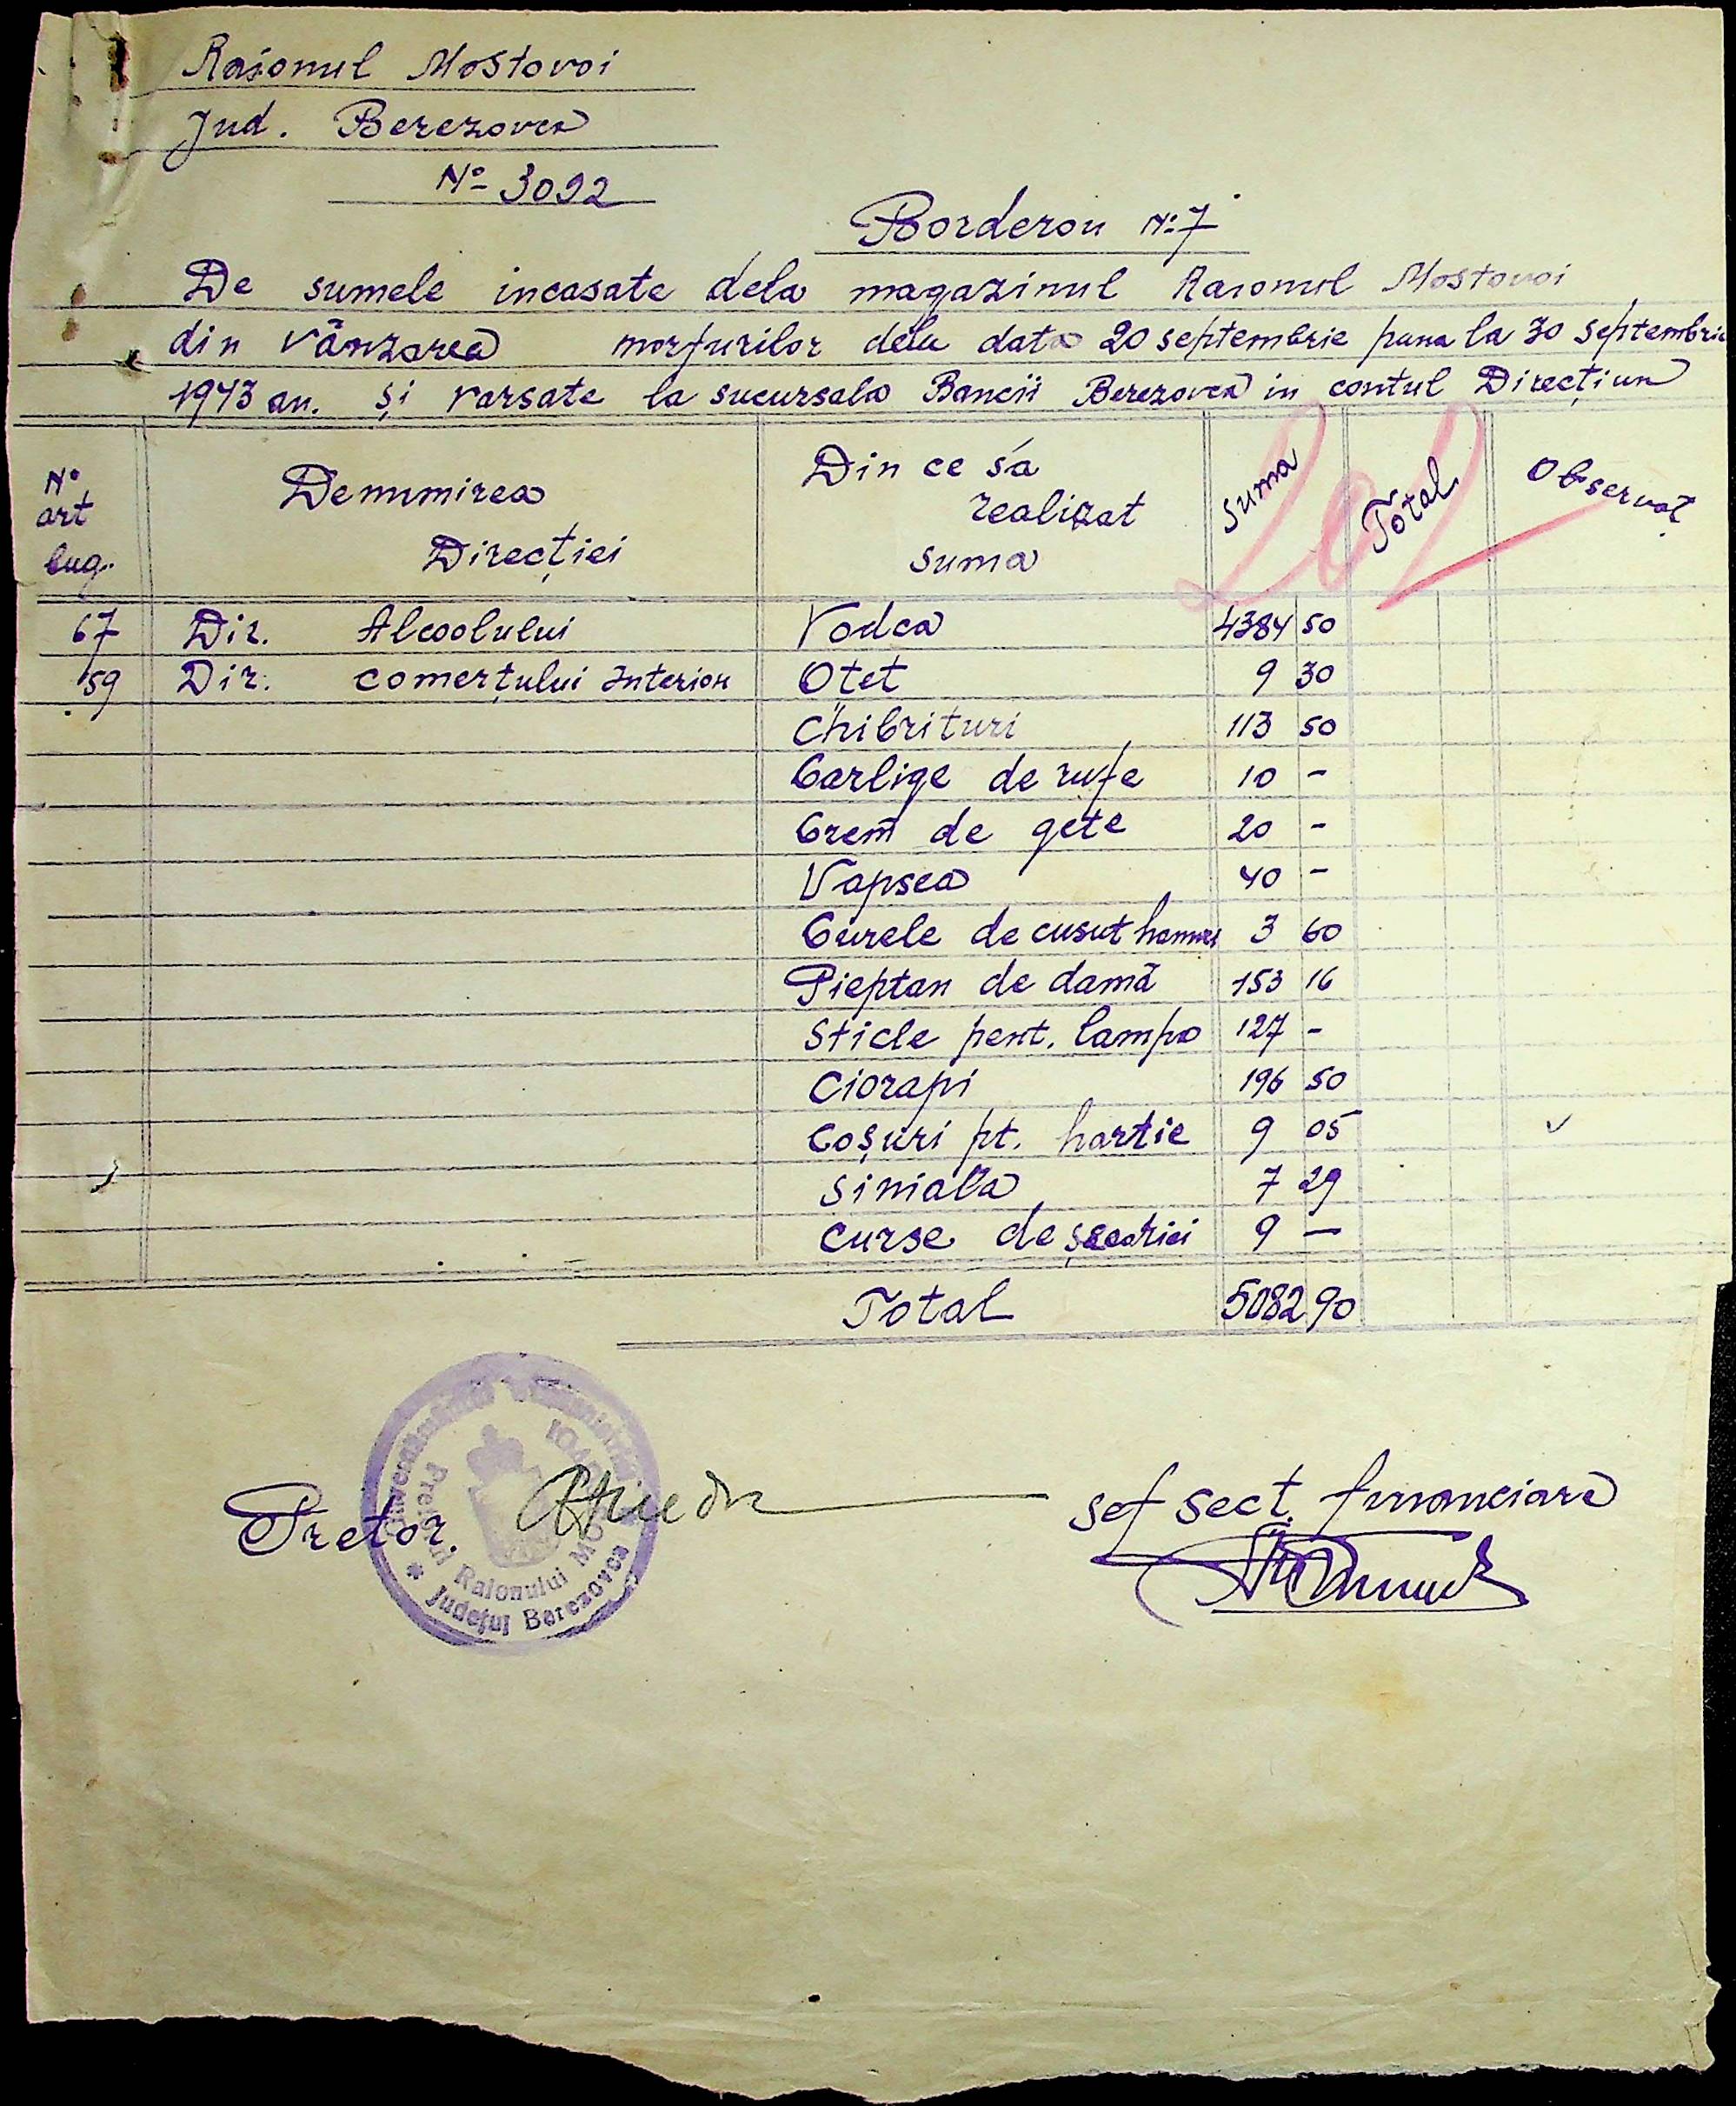 Raionul Mostovoi
Jud. Berezovca
No 3092
Borderou No 7
De sumele incasate dela magazinul Raionul Mostovoi
din vânzarea morfurilor dela data 20 septembrie pana la 30 septembrie
1943 an. și varsate la sucursala Bancii Berezovca in contul Direcțiun
No art bug. Denumirea Direcției Din ce s'a realizat suma Suma Total Observat
67 Dir. Alcoolului Vodca 4384 50
59 Dir. comerțului Interior Otet 9 30
Chibrituri 113 50
Carlige de rufe 10 -
Crem de gete 20 -
Vapsea 40 -
Curele de cusut hamuri 3 60
Pieptan de damă 153 16
Sticle pent. lampa 127 -
Ciorapi 196 50
Coșuri pt. hartie 9 05
Siniala 7 29
Curse de 9 —
Total 5082 90
Pretor.
sef sect. financiara
Pretura Raionului MOSTOVOI
* Județul Berezovca